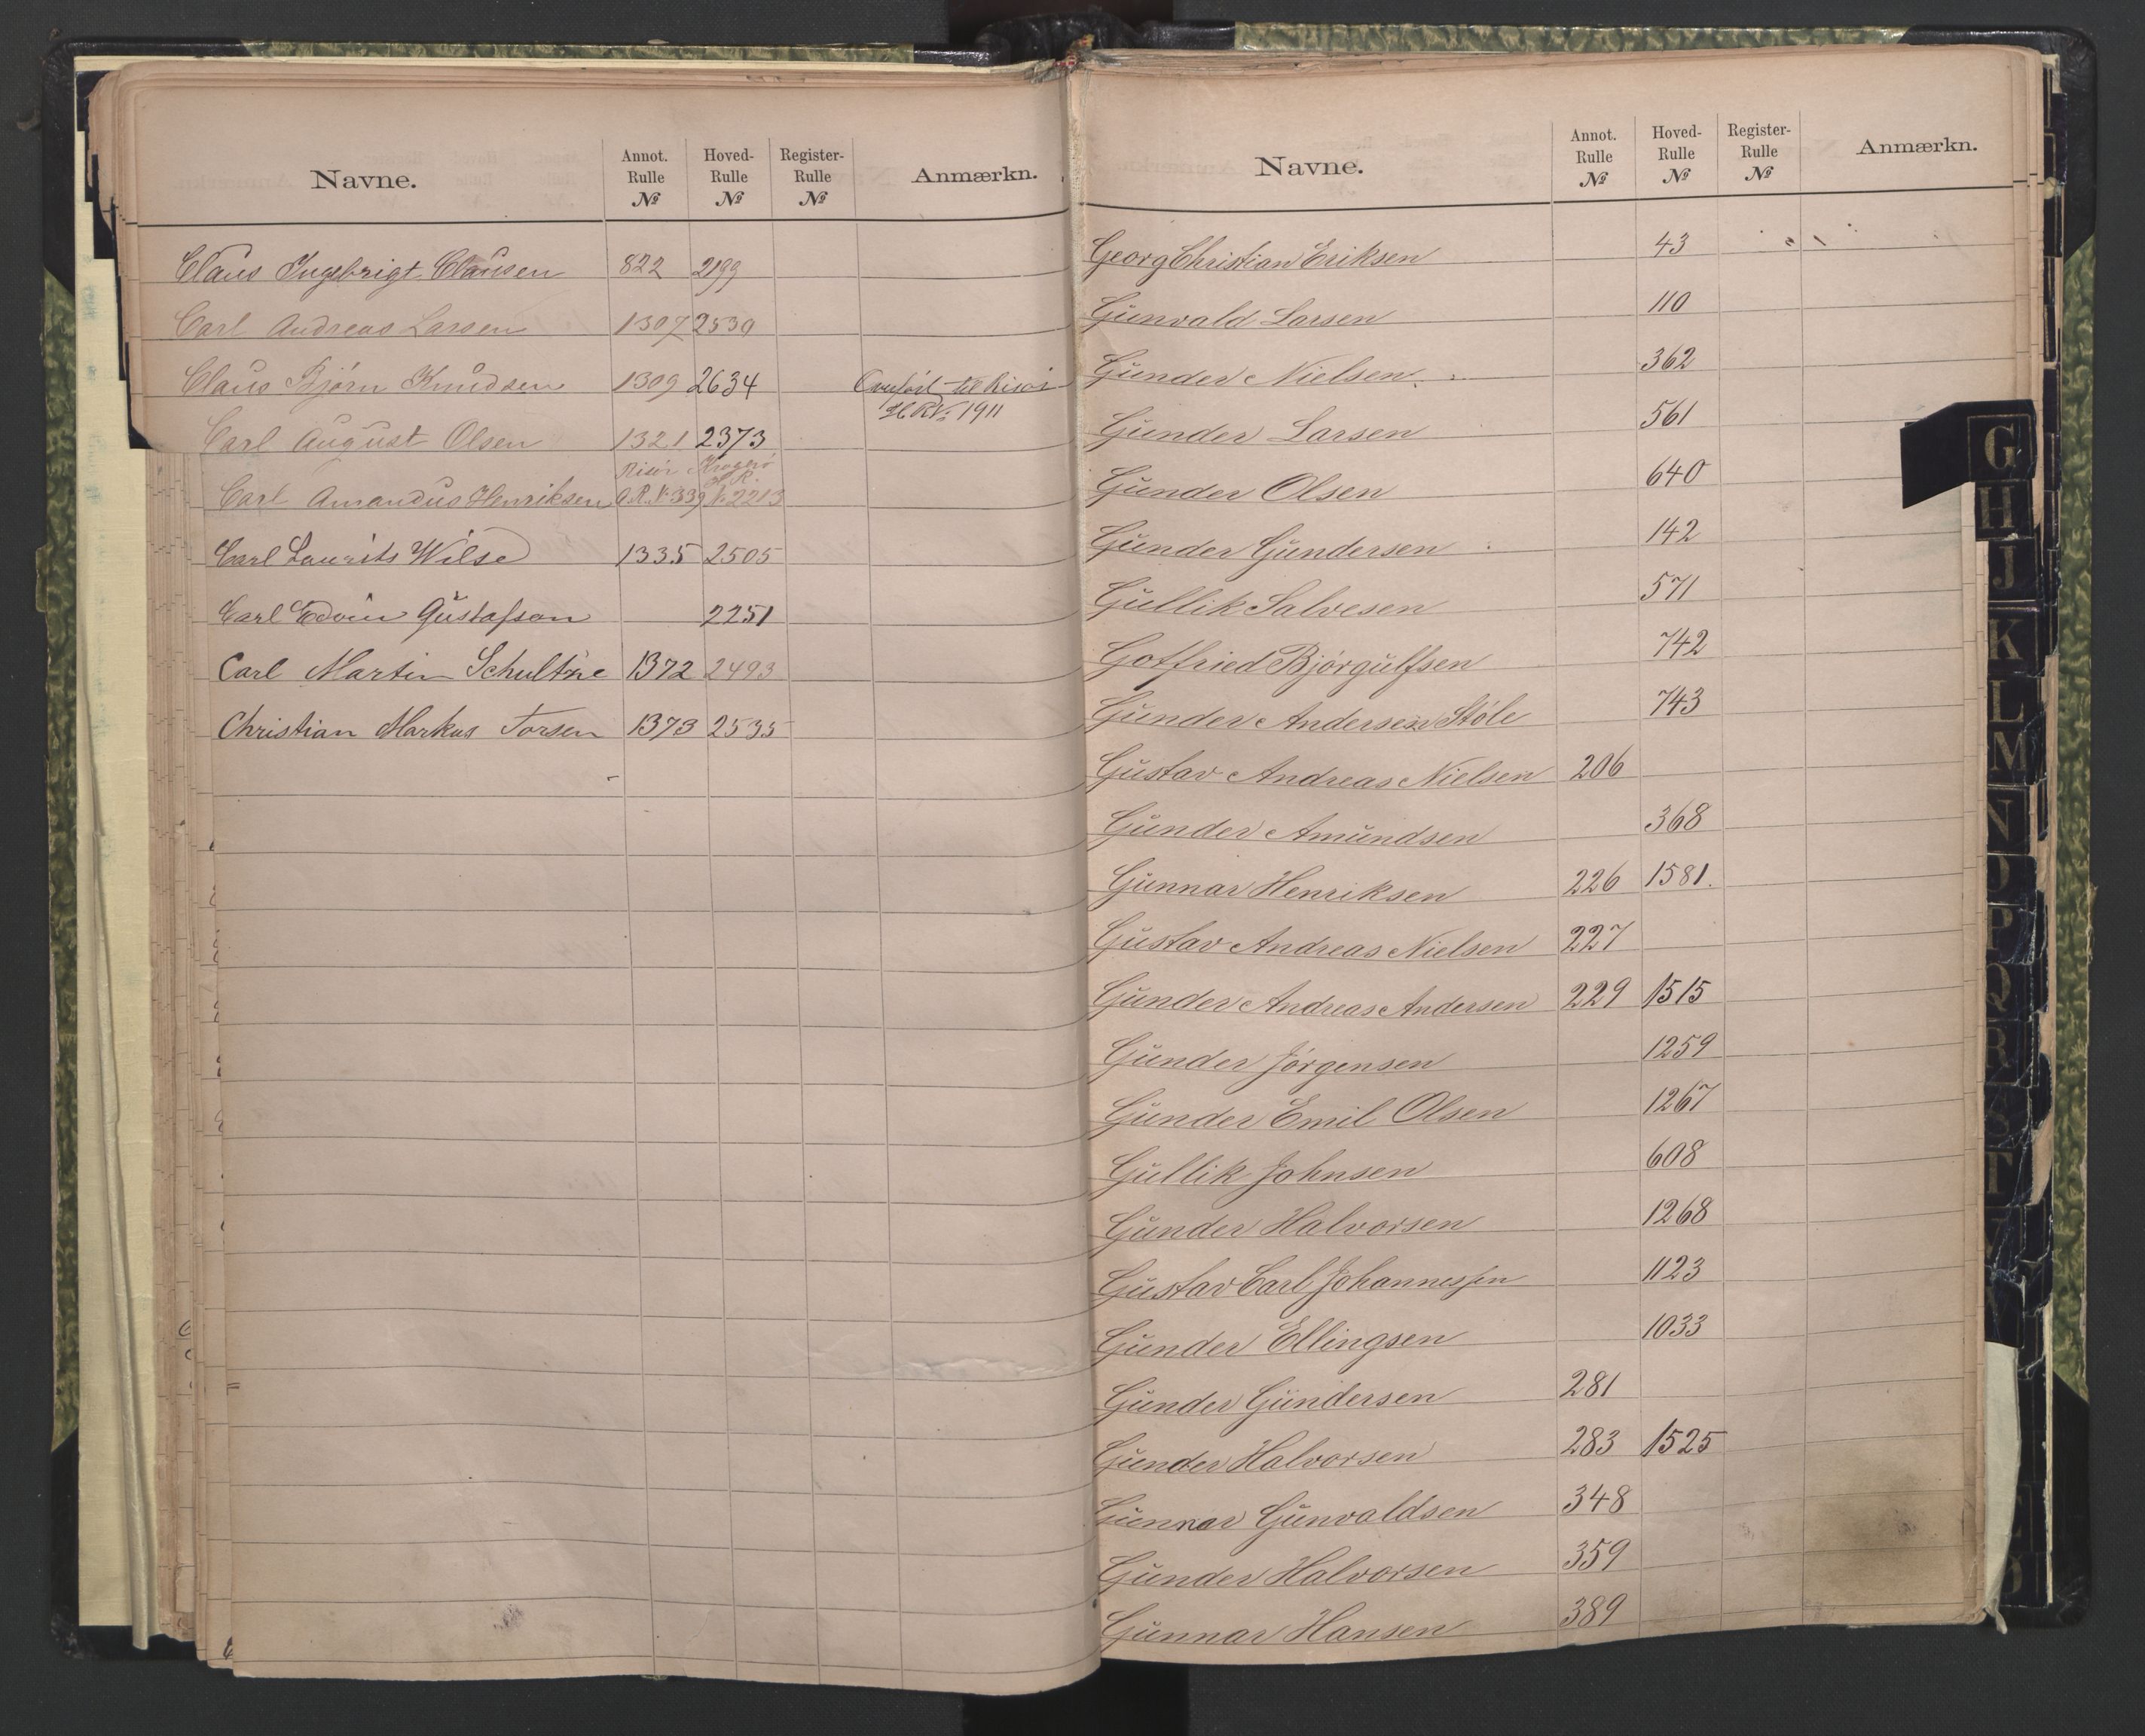 Navne. Annot. Rulle No Hoved-Rulle No Register-Rulle No Anmærkn.
Claus Ingebrigt Clausen 822 2199
Carl Andreas Larsen 1307 2530
Claus Bjørn Knudsen 1309 2634 Overført til Risør
H.R.No. 1911
Carl August Olsen 1321 2373
Risør Kragerø
H.R.
Carl Amandus Henriksen A.R.N. 339 N. 2213
Carl Laurits Wilse 1335 2505
Carl Edvin Gustafson 2251
Carl Martin Schultze 1372 2493
Christian Markus Torsen 1373 2535
Navne. Annot. Rulle No Hoved-Rulle No Register-Rulle No Anmærkn.
Georg Christian Eriksen 43
Gunvald Larsen 110
Gunder Nielsen 362
Gunder Larsen 561
Gunder Olsen 640
Gunder Gundersen 142
Gullik Salvesen 571
Gotfried Bjørgulfsen 742
Gunder Andersen Støle 743
Gustav Andreas Nielsen 206
Gunder Amundsen 368
Gunnar Henriksen 226 1581.
Gustav Andreas Nielsen 227
Gunder Andreas Andersen 229 1515
Gunder Jörgensen 1259
Gunder Emil Olsen 1267
Gullik Johnsen 608
Gunder Halvorsen 1268
Gustav Carl Johannessen 1123
Gunder Ellingsen 1033
Gunder Gundersen 281
Gunder Halvorsen 283 1525
Gunnar Gunvaldsen 348
Gunder Halvorsen 359
Gunnar Hansen 389
G
H
J
K
L
M
N
O
P
Q
R
S
T
V